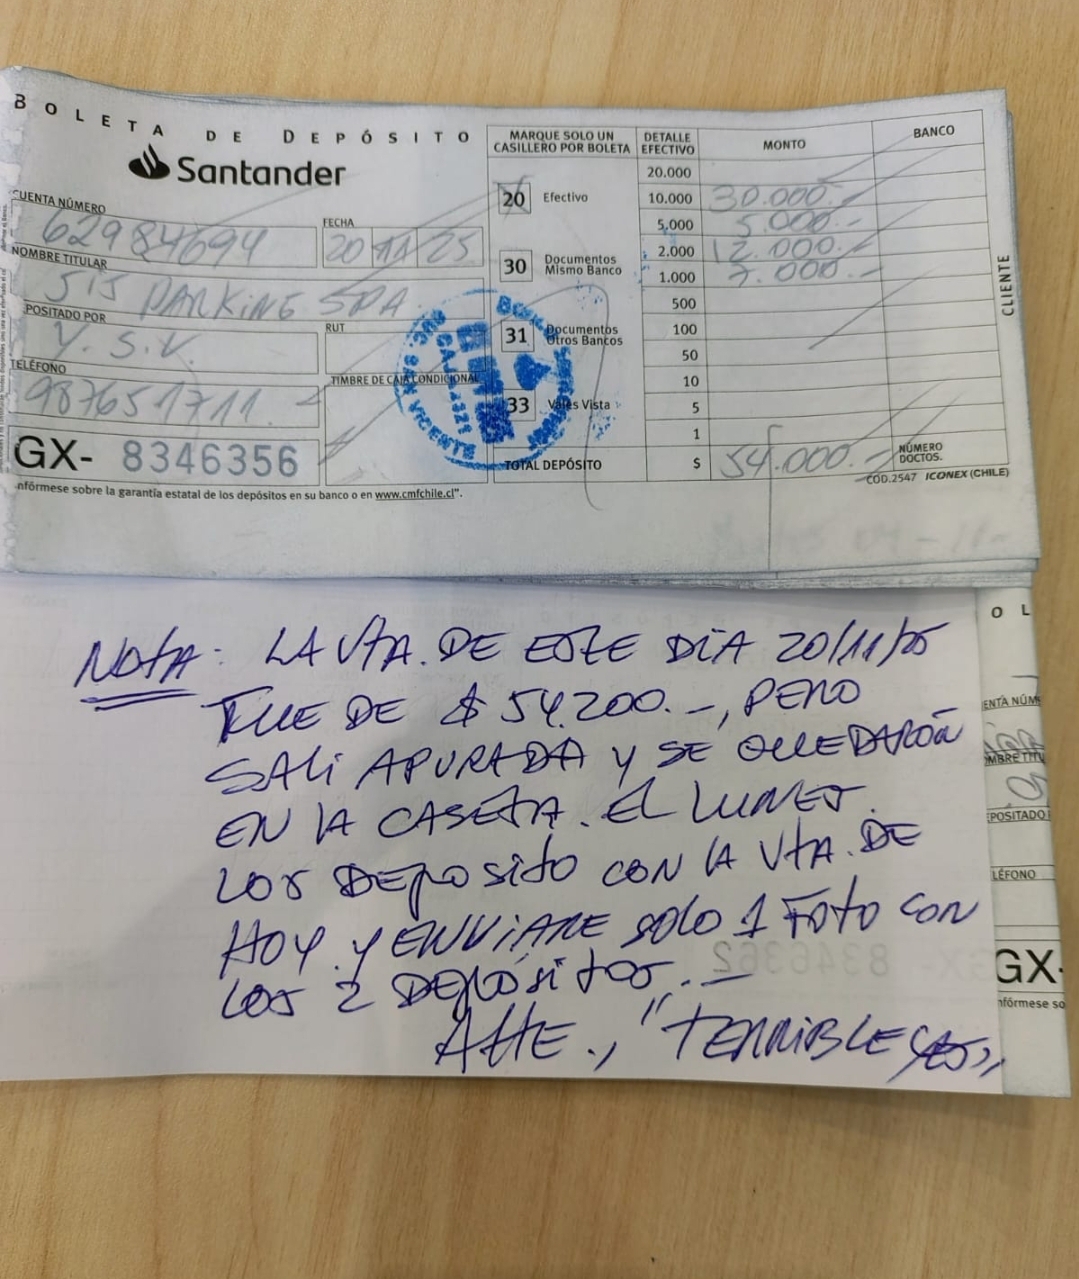 BOLETA DE DEPÓSITO
Santander
CUENTA NÚMERO
62984694
FECHA
20 11 25
NOMBRE TITULAR
SJS PARKING SPA
POSITADO POR
V. S. V.
RUT
TELÉFONO
987651711.-
TIMBRE DE CAJA CONDICIONAL
GX- 8346356
nfórmese sobre la garantía estatal de los depósitos en su banco o en www.cmfchile.cl".
MARQUE SOLO UN
CASILLERO POR BOLETA
20 Efectivo
30 Documentos
Mismo Banco
31 Documentos
Otros Bancos
33 Vales Vista
TOTAL DEPÓSITO
DETALLE
EFECTIVO
MONTO
BANCO
20.000
10.000 30.000.-
5.000 5.000.-
2.000 12.000.-
1.000 7.000.-
500
100
50
10
5
1
$ 54.000.-
NÚMERO
DOCTOS.
COD.2547 ICONEX (CHILE)
CLIENTE
SUC SAN VICENTE
NOTA: LA VTA. DE ESTE DIA 20/11/25
FUE DE $ 54.200.-, PERO
SALI APURADA Y SE QUEDARÓN
EN LA CASETA. EL LUNES
LOS DEPOSITO CON LA VTA. DE
HOY Y ENVIARE SOLO 1 FOTO CON
LOS 2 DEPÓSITOS.-
ATTE., "TERRIBLE
O L
ENTA NÚM
OMBRE TIT
EPOSITADO
LÉFONO
8346362
GX-
nfórmese so